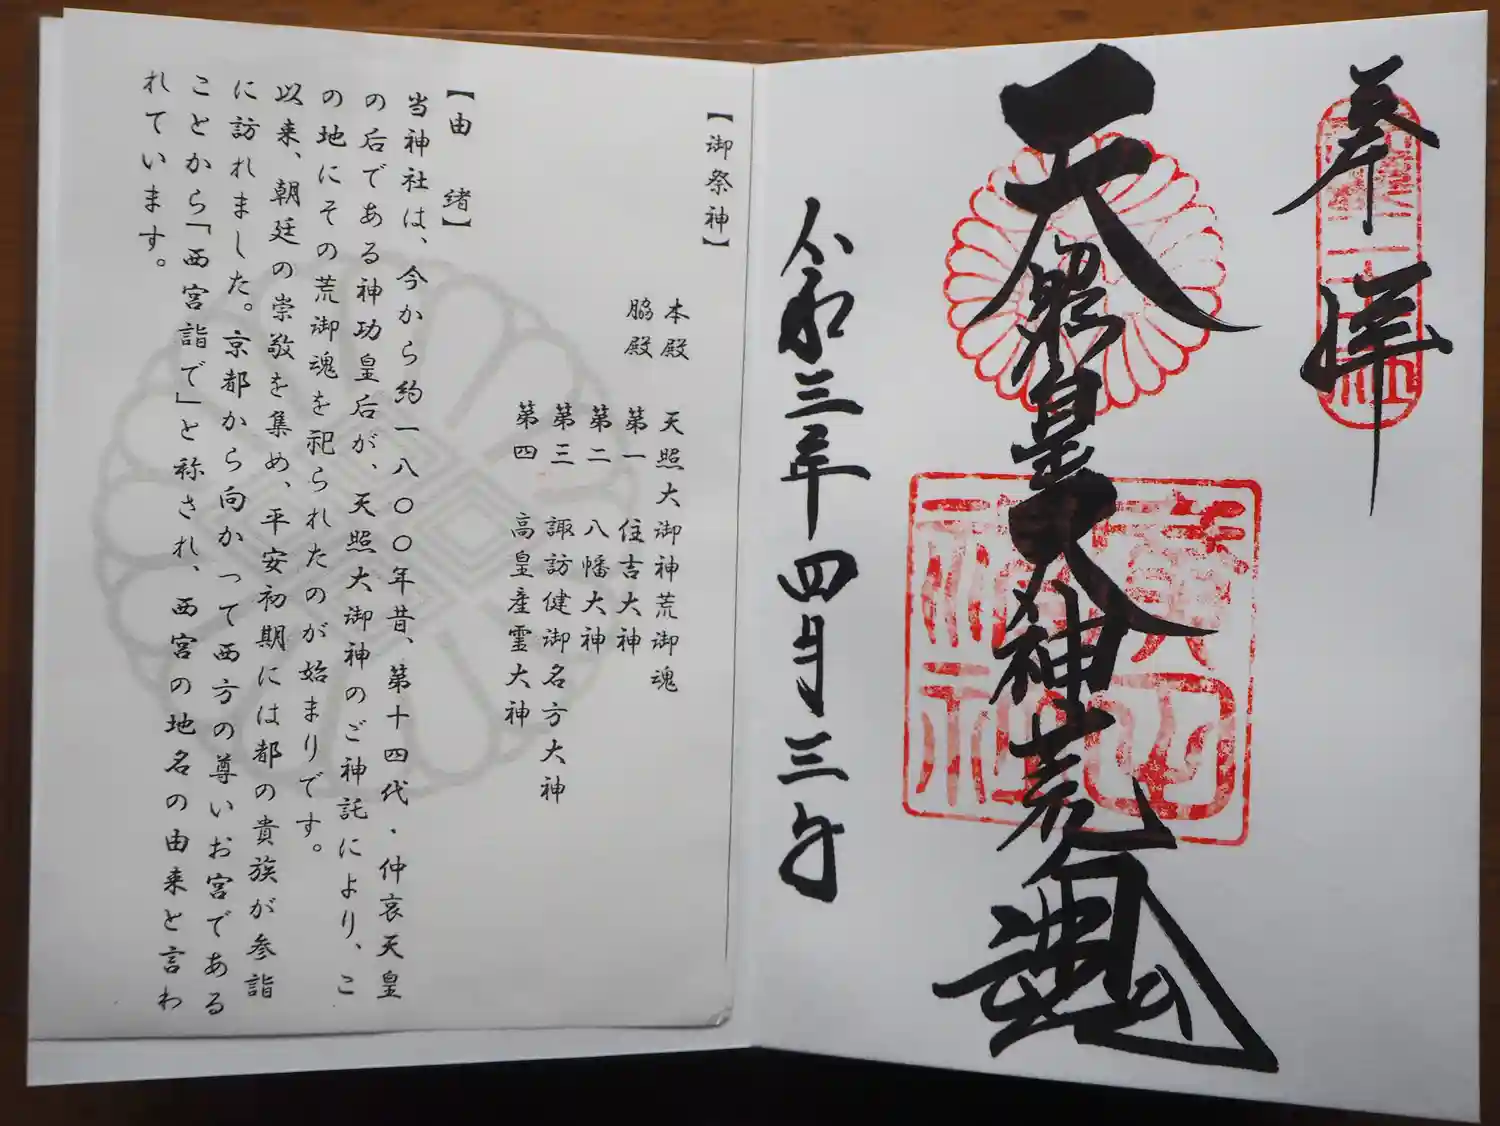 奉拝
天照皇大神荒魂
廣田神社
令和三年四月三日
【御祭神】
本殿　天照大御神荒御魂
脇殿　第一　住吉大神
第二　八幡大神
第三　諏訪健御名方大神
第四　高皇産霊大神
【由　緒】
当神社は、今から約一八〇〇年昔、第十四代・仲哀天皇
の后である神功皇后が、天照大御神のご神託により、こ
の地にその荒御魂を祀られたのが始まりです。
以来、朝廷の崇敬を集め、平安初期には都の貴族が参詣
に訪れました。京都から向かって西方の尊いお宮である
ことから「西宮詣で」と称され、西宮の地名の由来と言わ
れています。